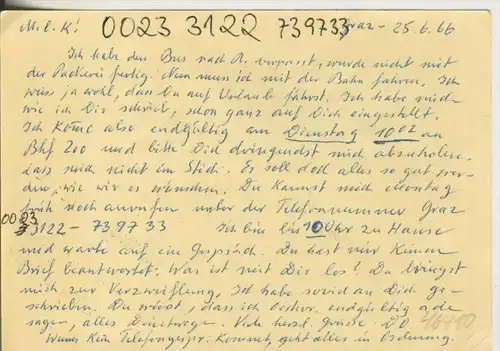 M. l. K! 0023 3122 739733 Graz - 25.6.66
Ich habe den Bus nach R. verpasst, wurde nicht mit
der Packerei fertig. Nun muss ich mit der Bahn fahren. Ich
weiss ja wohl, dass Du auf Urlaub fährst. Ich habe mich
wie ich Dir schrieb, schon ganz auf Dich eingestellt.
Ich komme also endgültig am Dienstag 10 02 am
Bhf Zoo und bitte Dich dringendst mich abzuholen.
lass mich nicht im Stich. Es soll doch alles so gut wer-
den, wie wir es wünschen. Du kannst mich Montag
früh noch anrufen unter der Telefonnummer Graz
0023
3122 - 739733 Ich bin bis 10 Uhr zu Hause
und warte auf ein Gespräch. Du hast mir keinen
Brief beantwortet. Was ist mit Dir los? Du bringst
mich zur Verzweiflung. Ich habe soviel an Dich ge-
schrieben. Du weisst, dass ich Oesterr. endgültig ade
sagen, alles Viele herzl. Grüsse DO
Wenn kein Telefongespr. kommt, geht alles in Ordnung.